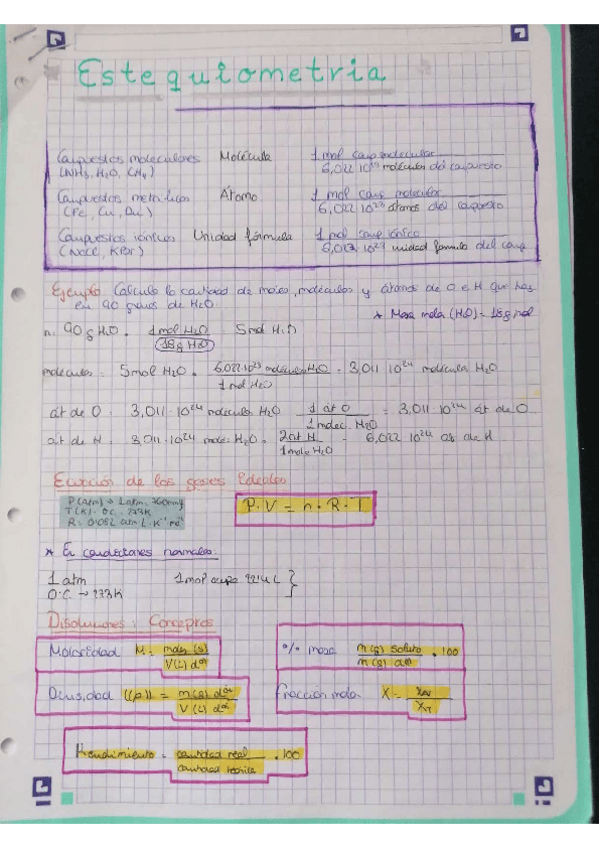 Estequiometria
Compuestos moleculares Molécula 1 mol comp molecular
(NH3, H2O, CH4) 6,022 10^23 moléculas del compuesto
Compuestos metálicos Átomo 1 mol comp molecular
(Fe, Cu, Au) 6,022 10^23 átomos del compuesto
Compuestos iónicos Unidad fórmula 1 mol comp iónico
(NaCl, KBr) unidad formula del comp
Ejemplo Calcula la cantidad de moles, moléculas y átomos de O e H que hay
en 90 gramos de H2O
* Masa mola (H2O) = 18g mol
n: 90 g H2O · 1 mol H2O 5 mol H2O
18g H2O
moléculas = 5 mol H2O · 6,022 10^23 moléculas H2O = 3,011 10^24 molécula H2O
1 mol H2O
át de O: 3,011 · 10^24 molécula H2O 1 át O = 3,011 10^24 át de O
1 molec. H2O
át de H = 3,011 · 10^24 molec H2O · 2 at H = 6,022 10^24 at de H
1 molec H2O
Ecuación de los gases Ideales
P(atm) → 1 atm. 760mmg
T(K). 0C. 273K
R: 0,082 atm L · K^-1 mol^-1
P · V = n · R · T
* En condiciones normales.
1 atm 1 mol ocupa 22,4 L }
0.C. → 273K
Disoluciones: Conceptos
Molaridad M = moles (s)
V(L) dón
% masa m (g) soluto · 100
m (g) dón
Densidad ((ρ)) = m (g) dón
V (L) dón
Fracción mola X =
Rendimiento = cantidad real · 100
cantidad teórica